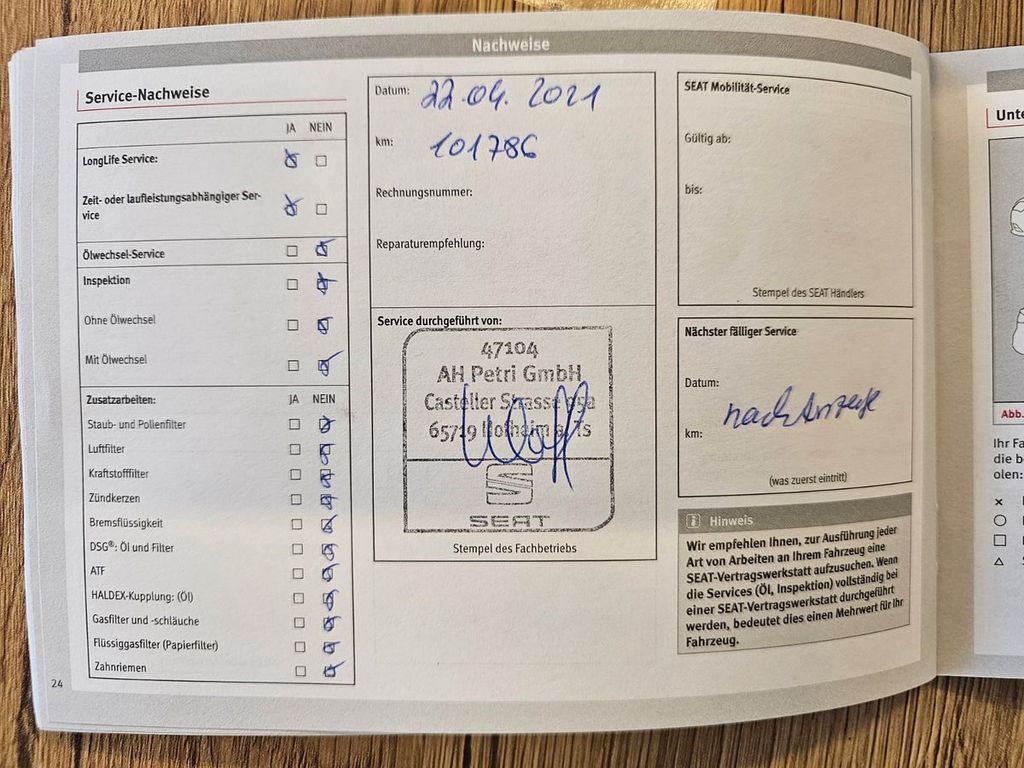 Nachweise
Service-Nachweise
JA NEIN
LongLife Service:
Zeit- oder laufleistungsabhängiger Ser-
vice
Ölwechsel-Service
Inspektion
Ohne Ölwechsel
Mit Ölwechsel
Zusatzarbeiten: JA NEIN
Staub- und Pollenfilter
Luftfilter
Kraftstofffilter
Zündkerzen
Bremsflüssigkeit
DSG®: Öl und Filter
ATF
HALDEX-Kupplung: (Öl)
Gasfilter und -schläuche
Flüssiggasfilter (Papierfilter)
Zahnriemen
24
Datum: 22.04.2021
km: 101786
Rechnungsnummer:
Reparaturempfehlung:
Service durchgeführt von:
47104
AH Petri GmbH
Casteller Strasse
65719 Hofheim a. Ts
SEAT
Stempel des Fachbetriebs
SEAT Mobilität-Service
Gültig ab:
bis:
Stempel des SEAT Händlers
Nächster fälliger Service
Datum:
nach Anzeige
km:
(was zuerst eintritt)
i Hinweis
Wir empfehlen Ihnen, zur Ausführung jeder
Art von Arbeiten an Ihrem Fahrzeug eine
SEAT-Vertragswerkstatt aufzusuchen. Wenn
die Services (Öl, Inspektion) vollständig bei
einer SEAT-Vertragswerkstatt durchgeführt
werden, bedeutet dies einen Mehrwert für Ihr
Fahrzeug.
Unte
Abb.
Ihr Fa
die b
olen: